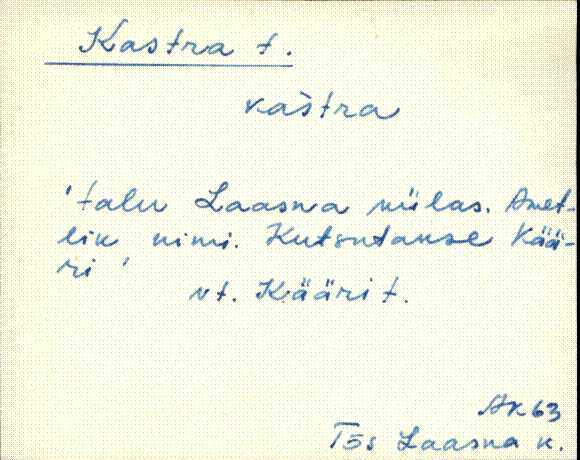 Kastra t.
kaš̀tra
'talu Laasna külas. Amet-
lik nimi. Kutsutakse Kää-
ri'
vt. Kääri t.
AK 63
Tõs Laasna k.